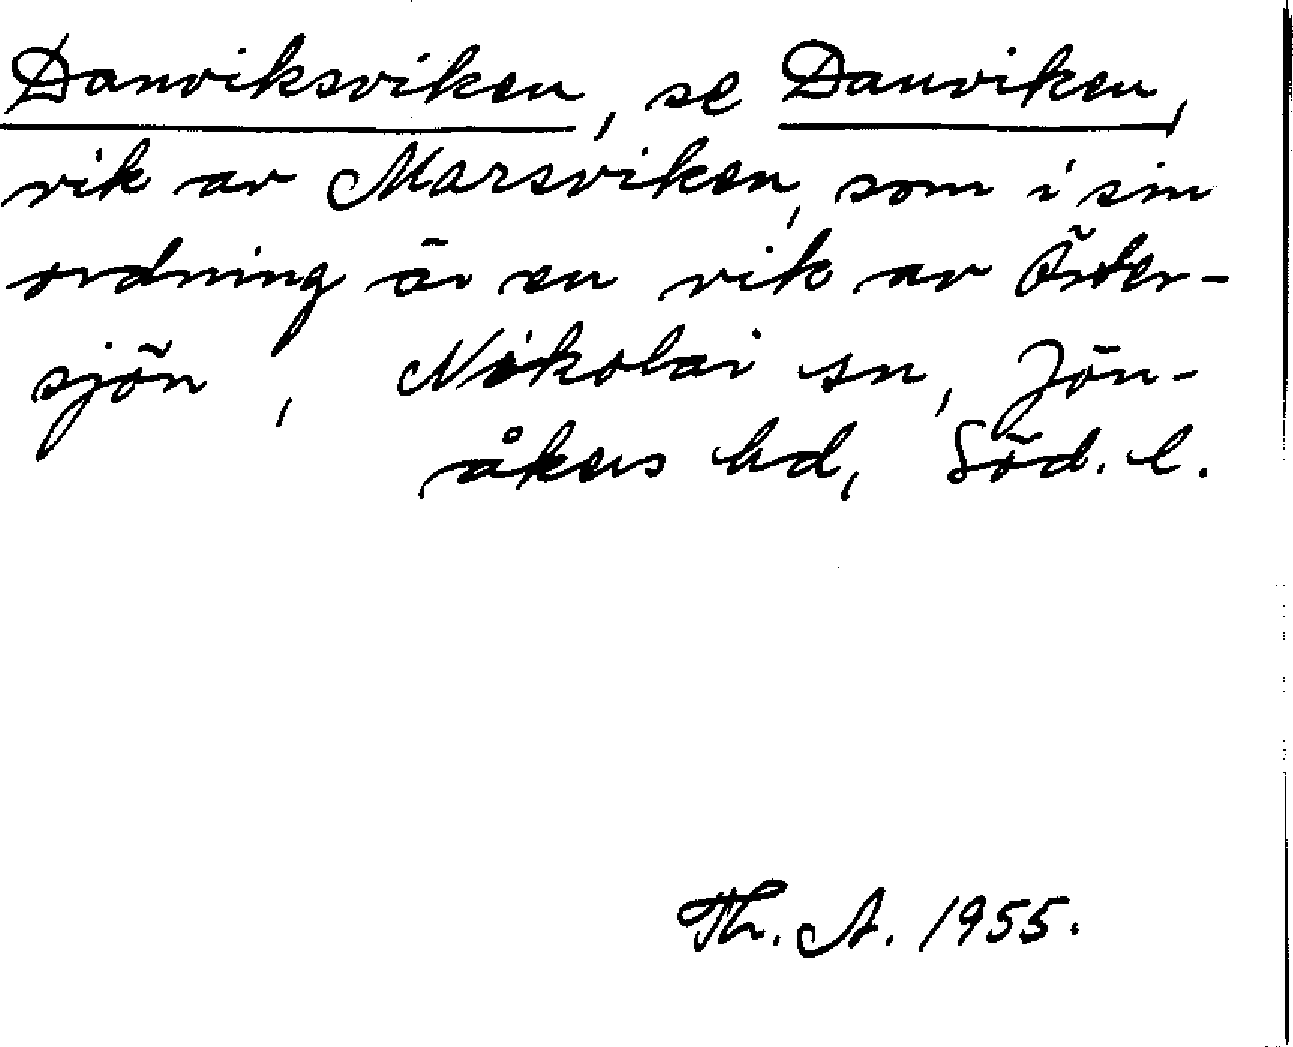 Danviksviken, se Danviken,
vik av Marsviken, som i sin
ordning är en vik av Öster-
sjön, Nikolai sn, Jön-
åkers hd, Söd. l.
Th. A. 1955.